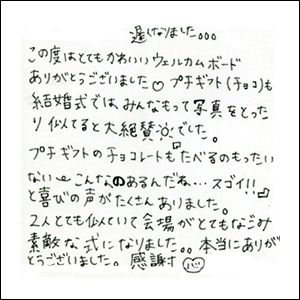 遅くなりました。。。
この度はとてもかわいいウェルカムボード
ありがとうございました♡ プチギフト(チョコ)も
結婚式では、みんなもって写真をとった
り 似てると大絶賛でした。
プチギフトのチョコレートも『たべるのもったい
ない〜こんなのあるんだね…スゴイ!!』
と喜びの声がたくさんありました。
2人とても似ていて会場がとてもなごみ
素敵な式になりました。。本当にありが
とうございました。 感謝